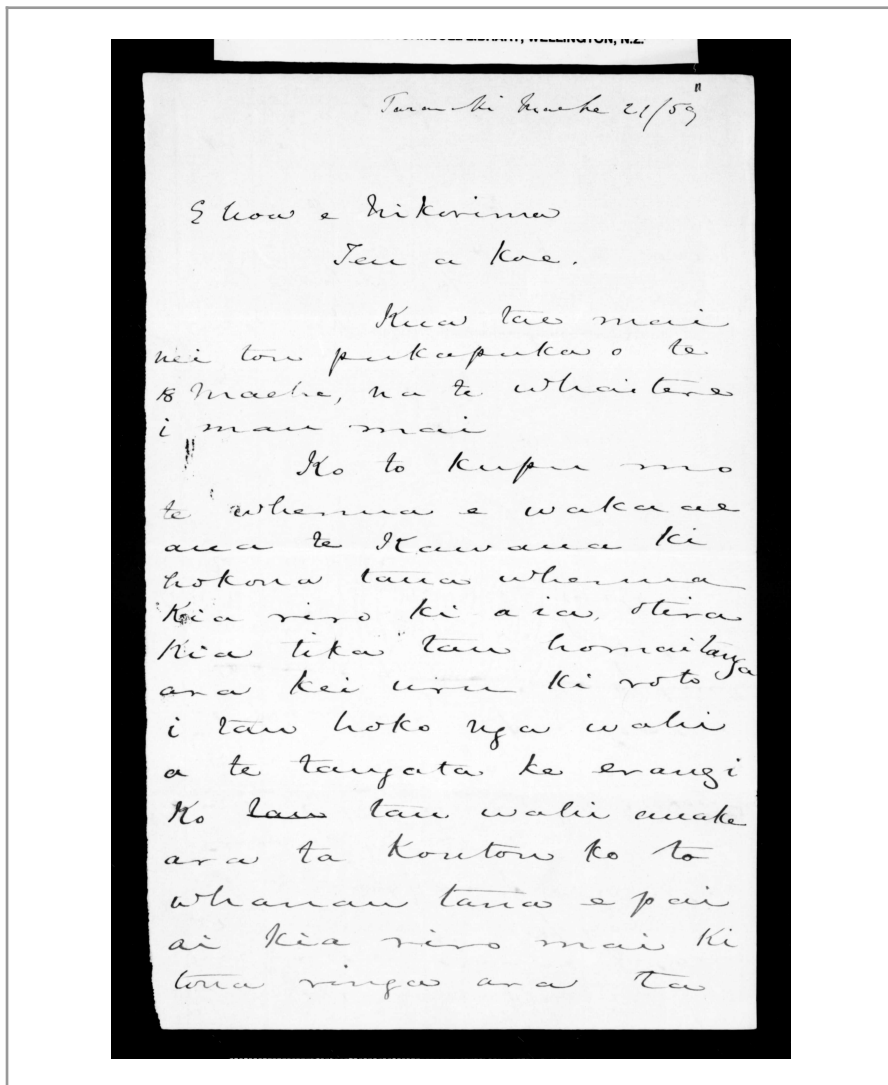 LIBRARY, WELLINGTON, N.Z.
Maehe 21/59
E hoa e Nikorima
Ten a koe.
Kua tae mai
nei tou pukapuka o te
8 Maehe, na te whaitere
i mau mai
Ko to kupu mo
te whenua e waka ae
ana te Kawana ki
hokona taua whenua
Kia riro ki a ia, otira
Kia tika tau homaitanga
ara kei uru ki roto
i tau hoko nga wahi
a te tangata ke erangi
Ko tau tau wahi anake
ara ta Koutou ko to
whanau taua e pai
ai kia riro mai ki
tona ringa ara ta